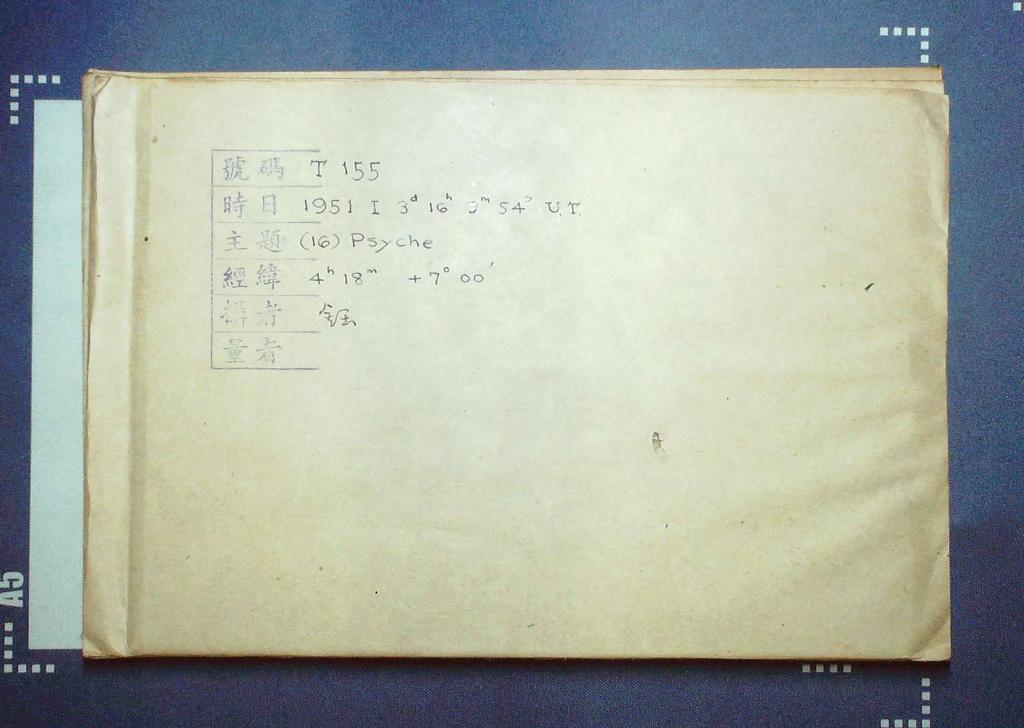 號碼 T 155
時日 1951 I 3ᵈ 16ʰ 9ᵐ 54ˢ U.T.
主題 (16) Psyche
經緯 4ʰ 18ᵐ +7° 00′
攝者
量者
A5